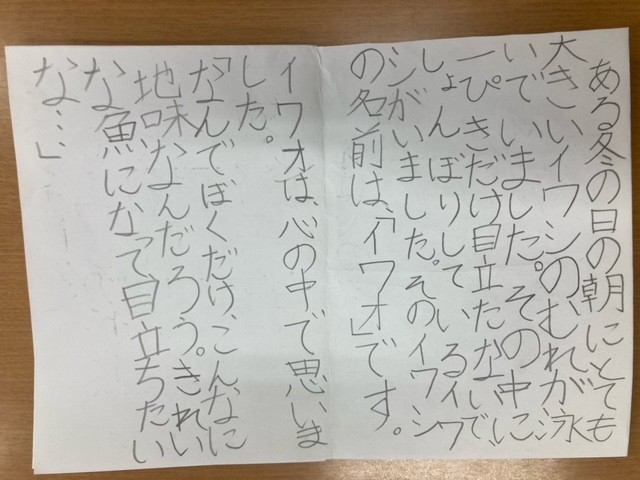 ある冬の日の朝にとても
大きいイワシのむれが泳
いでいました。その中に
一ぴきだけ目立たないで
しょんぼりしているイワ
シがいました。そのイワシ
の名前は、「イワオ」です。
イワオは、心の中で思いま
した。
「なんでぼくだけ、こんなに
地味なんだろう。きれい
な魚になって、目立ちたい
な…」